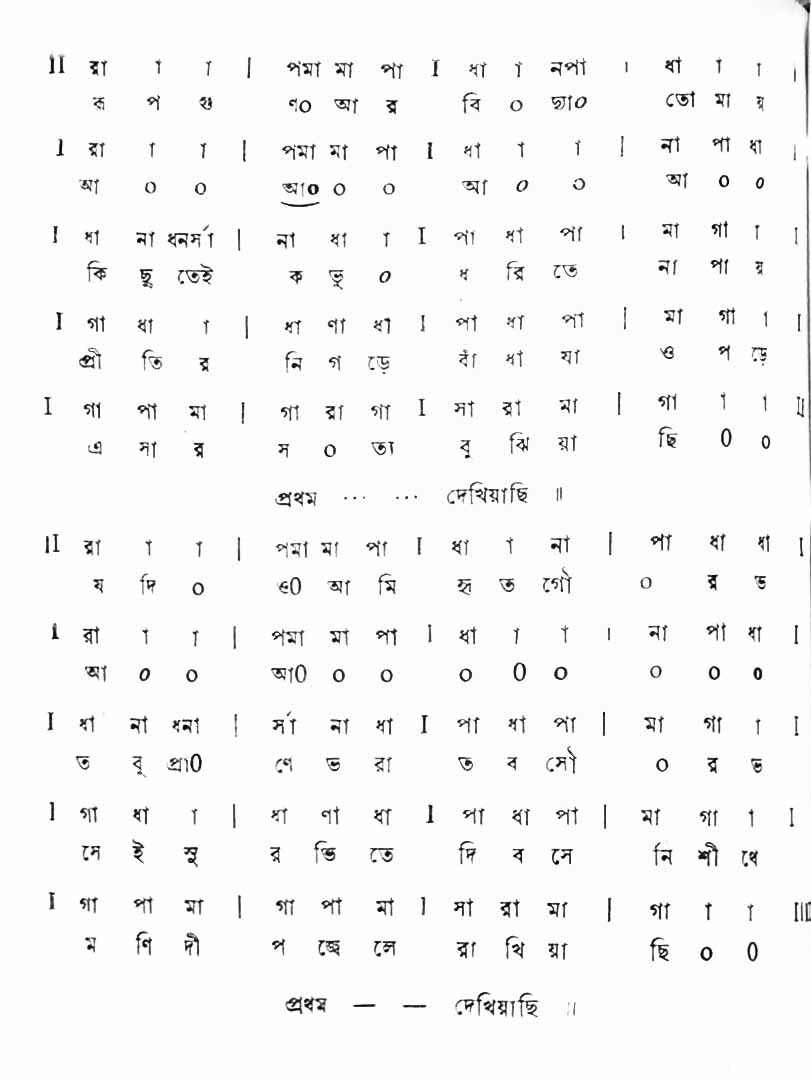 II রা া া | পমা মা পা I ধা া নপা । ধা া া |
রূ প গু ণ০ আ র বি ০ দ্যা০ তো মা য়
I রা া া | পমা মা পা I ধা া া | না পা ধা |
আ ০ ০ আ০ ০ ০ আ ০ ০ আ ০ ০
I ধা না ধনর্সা | না ধা া I পা ধা পা । মা গা া I
কি ছু তেই ক ভু ০ ধ রি তে না পা য়
I গা ধা া | ধা ণা ধা I পা ধা পা | মা গা া I
প্রী তি র নি গ ড়ে বাঁ ধা যা ও প ড়ে
I গা পা মা | গা রা গা I সা রা মা | গা া া II
এ সা র স ০ তা বু ঝি য়া ছি ০ ০
প্রথম ... ... দেখিয়াছি ॥
II রা া া | পমা মা পা I ধা া না | পা ধা ধা I
য দি ০ ও০ আ মি হৃ ত গৌ ০ র ভ
I রা া া | পমা মা পা I ধা া া । না পা ধা I
আ ০ ০ আ০ ০ ০ ০ ০ ০ ০ ০ ০
I ধা না ধনা | র্সা না ধা I পা ধা পা | মা গা া I
ত বু প্রা০ ণে ভ রা ত ব সৌ ০ র ভ
I গা ধা া | ধা ণা ধা I পা ধা পা | মা গা া I
সে ই সু র ভি তে দি ব সে নি শী থে
I গা পা মা | গা পা মা I সা রা মা | গা া া III
ম ণি দী প জ্বে লে রা খি য়া ছি ০ ০
প্রথম — — দেখিয়াছি ॥